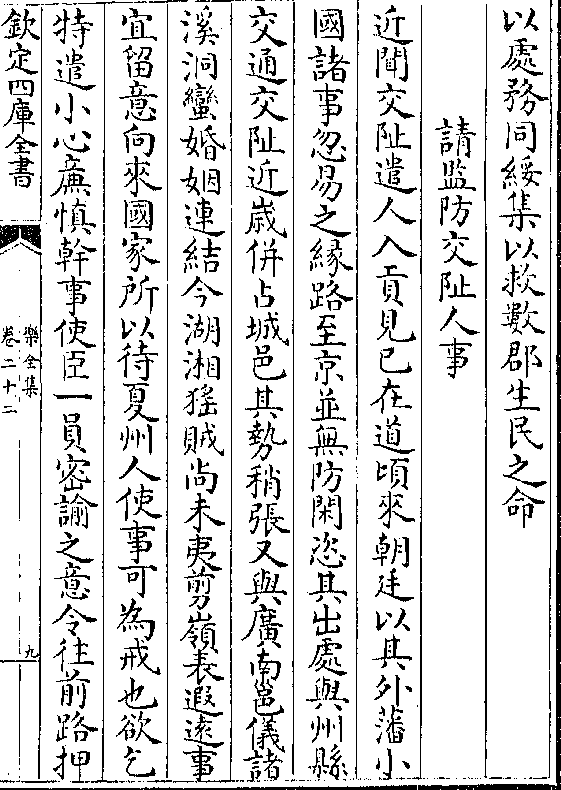 以處務同綏集以救數郡生民之命
請監防交阯人事
近聞交阯遣人入貢見已在道頃來朝廷以其外藩小
國諸事忽易之緣路至京並無防閑恣其出處與州縣
交通交阯近歲併占城邑其勢稍張又與廣南邕儀諸
溪洞蠻婚姻連結今湖湘猺賊尚未夷剪嶺表遐遠事
宜留意向來國家所以待夏州人使事可為戒也欲乞
特遣小心廉慎幹事使臣一員密諭之意令往前路押
欽定四庫全書
樂全集
卷二十二
九